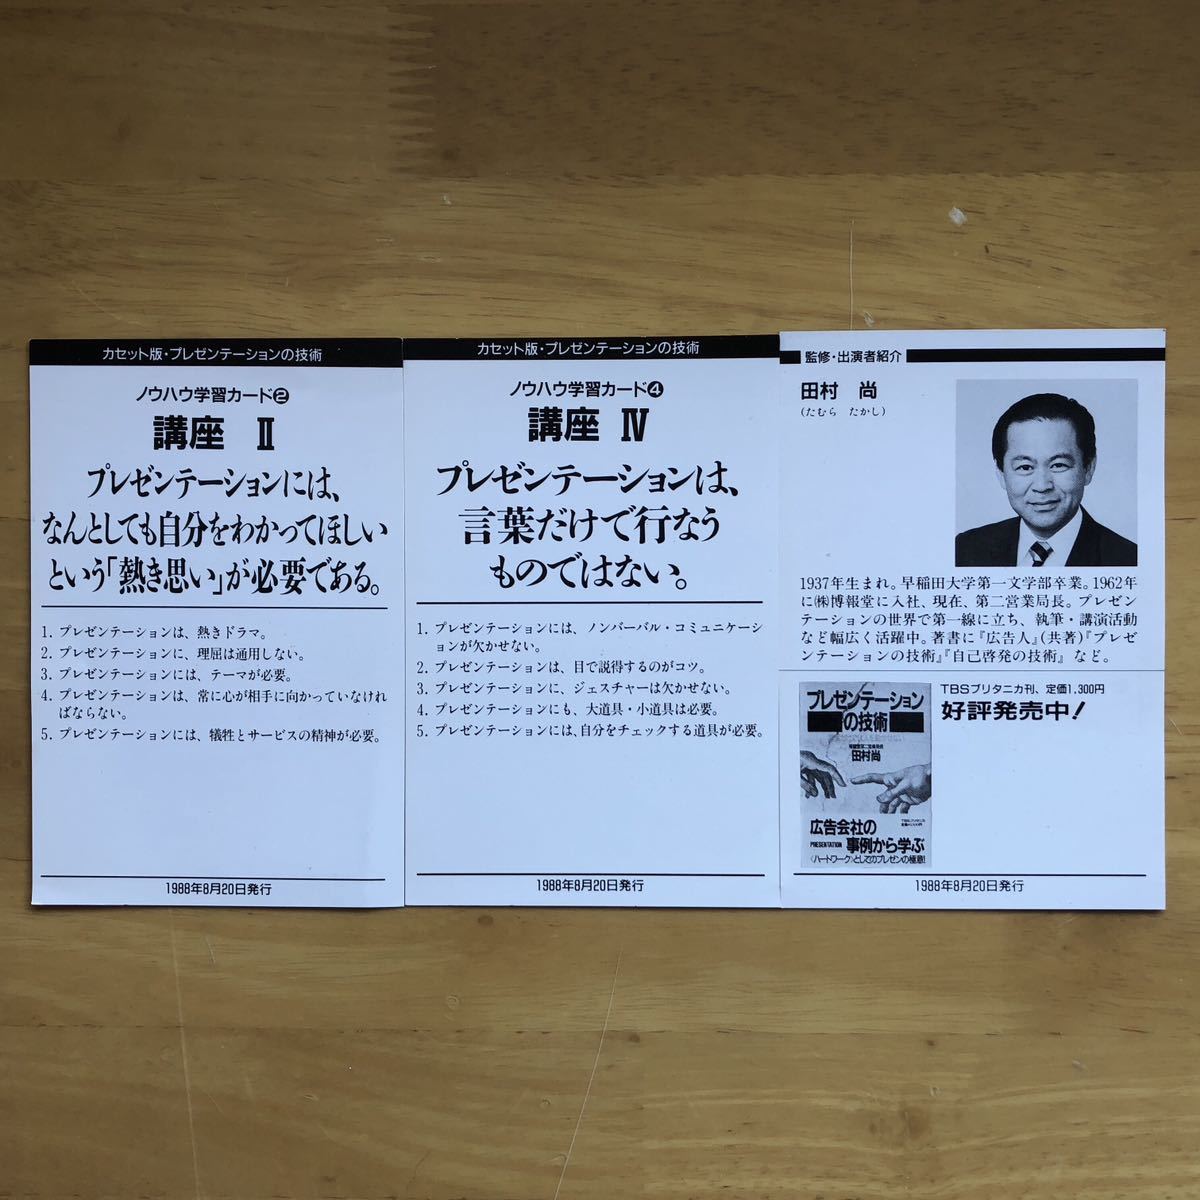 カセット版・プレゼンテーションの技術
ノウハウ学習カード❷
講座 Ⅱ
プレゼンテーションには、
なんとしても自分をわかってほしい
という「熱き思い」が必要である。
1. プレゼンテーションは、熱きドラマ。
2. プレゼンテーションに、理屈は通用しない。
3. プレゼンテーションには、テーマが必要。
4. プレゼンテーションは、常に心が相手に向かっていなけれ
ばならない。
5. プレゼンテーションには、犠牲とサービスの精神が必要。
1988年8月20日発行
カセット版・プレゼンテーションの技術
ノウハウ学習カード❹
講座 Ⅳ
プレゼンテーションは、
言葉だけで行なう
ものではない。
1. プレゼンテーションには、ノンバーバル・コミュニケーシ
ョンが欠かせない。
2. プレゼンテーションは、目で説得するのがコツ。
3. プレゼンテーションに、ジェスチャーは欠かせない。
4. プレゼンテーションにも、大道具・小道具は必要。
5. プレゼンテーションには、自分をチェックする道具が必要。
1988年8月20日発行
監修・出演者紹介
田村 尚
(たむら たかし)
1937年生まれ。早稲田大学第一文学部卒業。1962年
に㈱博報堂に入社、現在、第二営業局長。プレゼン
テーションの世界で第一線に立ち、執筆・講演活動
など幅広く活躍中。著書に『広告人』(共著)『プレゼ
ンテーションの技術』『自己啓発の技術』など。
プレゼンテーション
の技術
田村尚
広告会社の
PRESENTATION 事例から学ぶ
〈ハートワーク〉としてのプレゼンの極意!
TBSブリタニカ刊、定価1,300円
好評発売中!
1988年8月20日発行